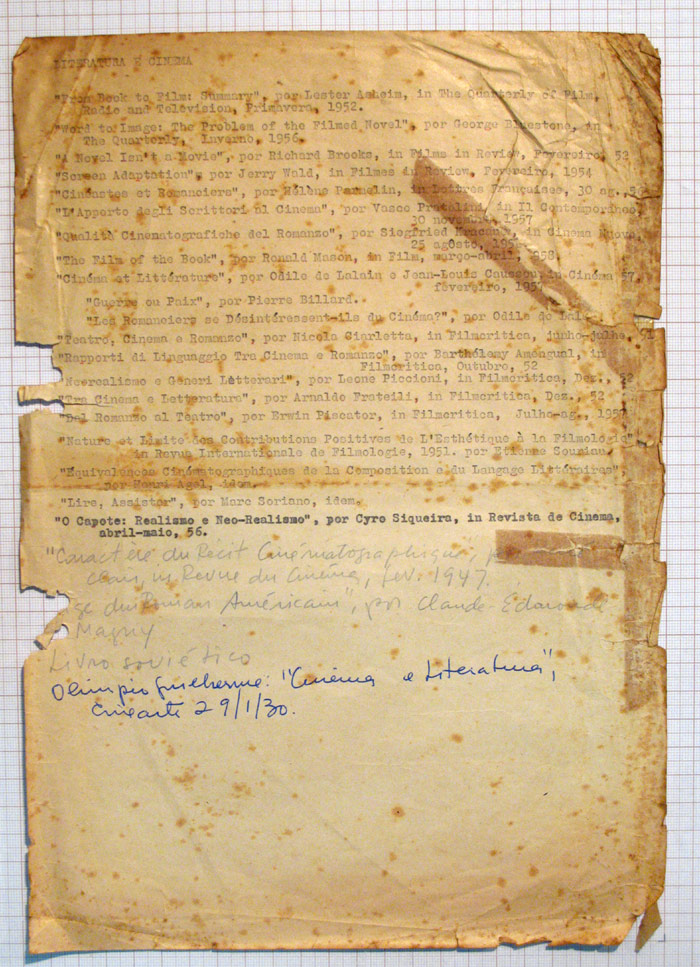 LITERATURA E CINEMA
"From Book to Film: Summary", por Lester Asheim, in The Quarterly of Film,
Radio and Television, Primavera, 1952.
"Word to Image: The Problem of the Filmed Novel", por George Bluestone, in
The Quarterly, Inverno, 1956
"A Novel Isn't a Movie", por Richard Brooks, in Films in Review, Fevereiro, 52
"Screen Adaptation", por Jerry Wald, in Filmes in Review, Fevereiro, 1954
"Cinéastes et Romanciers", por Hélène Parmelin, in Lettres Françaises, 30 ag.,
"L'Apporto degli Scrittori al Cinema", por Vasco Pratolini, in Il Contemporaneo,
30 novembro, 1957
"Qualità Cinematografiche del Romanzo", por Siegfried Kracauer, in Cinema Nuovo,
25 agosto,
"The Film of the Book", por Ronald Mason, in Film, março-abril, 1958.
"Cinéma et Littérature", por Odile de Lalain e Jean-Louis Caussou, in Cinéma 57,
fevereiro, 1957
"Guerre ou Paix", por Pierre Billard.
"Les Romanciers se Désintéressent-ils du Cinéma?", por Odile de
"Teatro, Cinema e Romanzo", por Nicola Ciarletta, in Filmcritica, junho-julho, 51
"Rapporti di Linguaggio Tra Cinema e Romanzo", por Barthélemy Amengual, in
Filmcritica, Outubro, 52
"Neorealismo e Generi Letterari", por Leone Piccioni, in Filmcritica, Dez., 52
"Tra Cinema e Letteratura", por Arnaldo Frateili, in Filmcritica, Dez., 52
"Dal Romanzo al Teatro", por Erwin Piscator, in Filmcritica, Julho-ag., 1957
"Nature et Limite des Contributions Positives de L'Esthétique à la Filmologie"
in Revue Internationale de Filmologie, 1951. por Etienne Souriau.
"Équivalences Cinématographiques de la Composition e du Langage Littéraires",
por Henri Agel, idem.
"Lire, Assister", por Marc Soriano, idem.
"O Capote: Realismo e Neo-Realismo", por Cyro Siqueira, in Revista de Cinema,
abril-maio, 56.
"Caractère du Récit Cinématographique,
in Revue du Cinéma, fev. 1947.
ge du Roman Américain", por Claude-Edmonde
Magny
Livro soviético
Olimpio Guilherme: "Cinema e Literatura",
Cinearte 29/1/30.